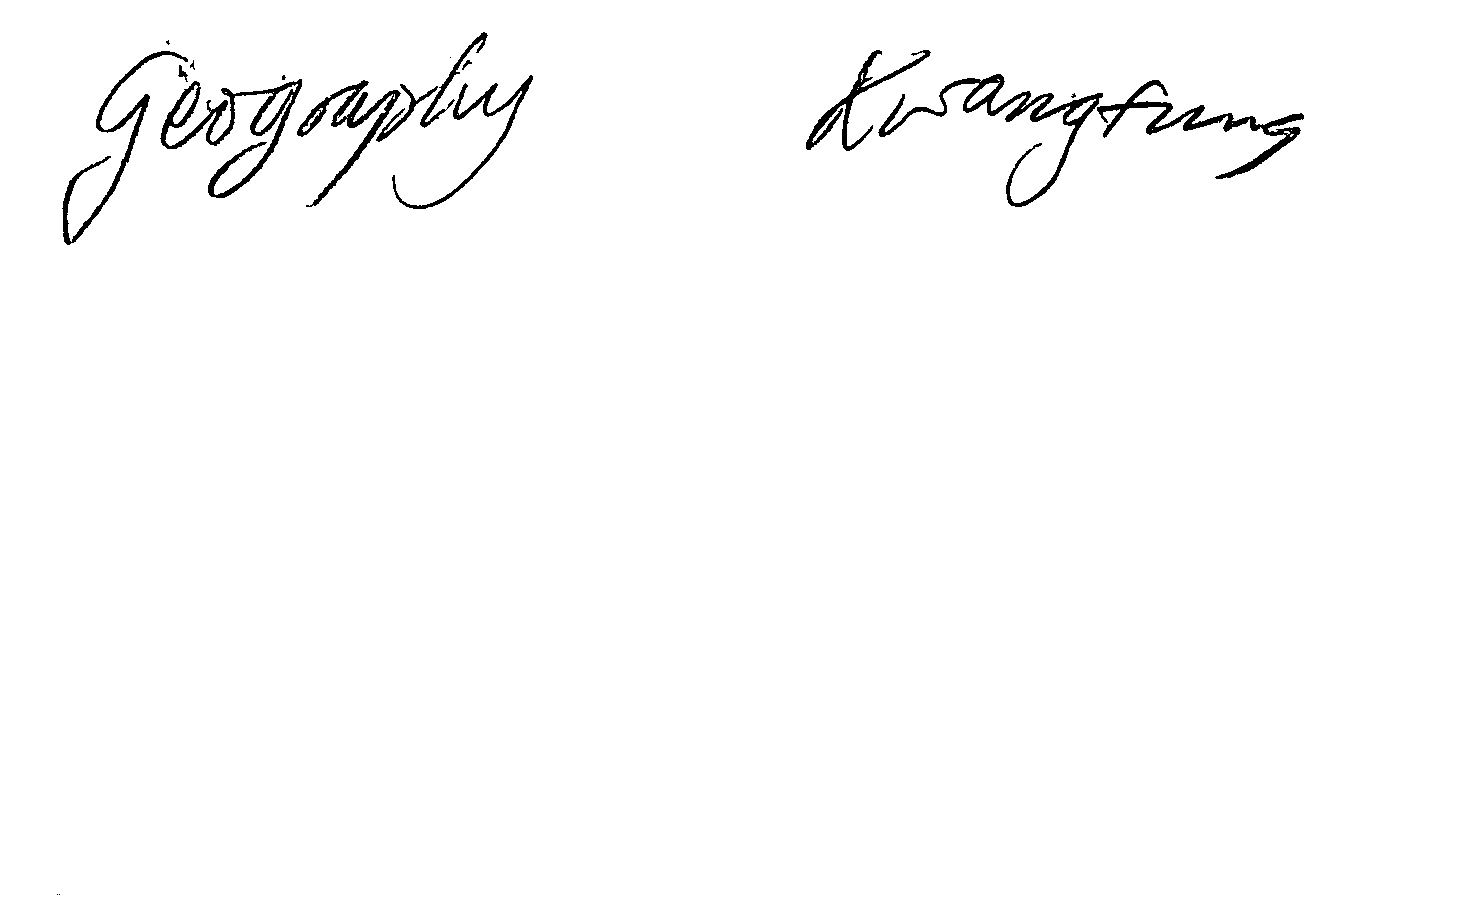 Geography Kwangtung